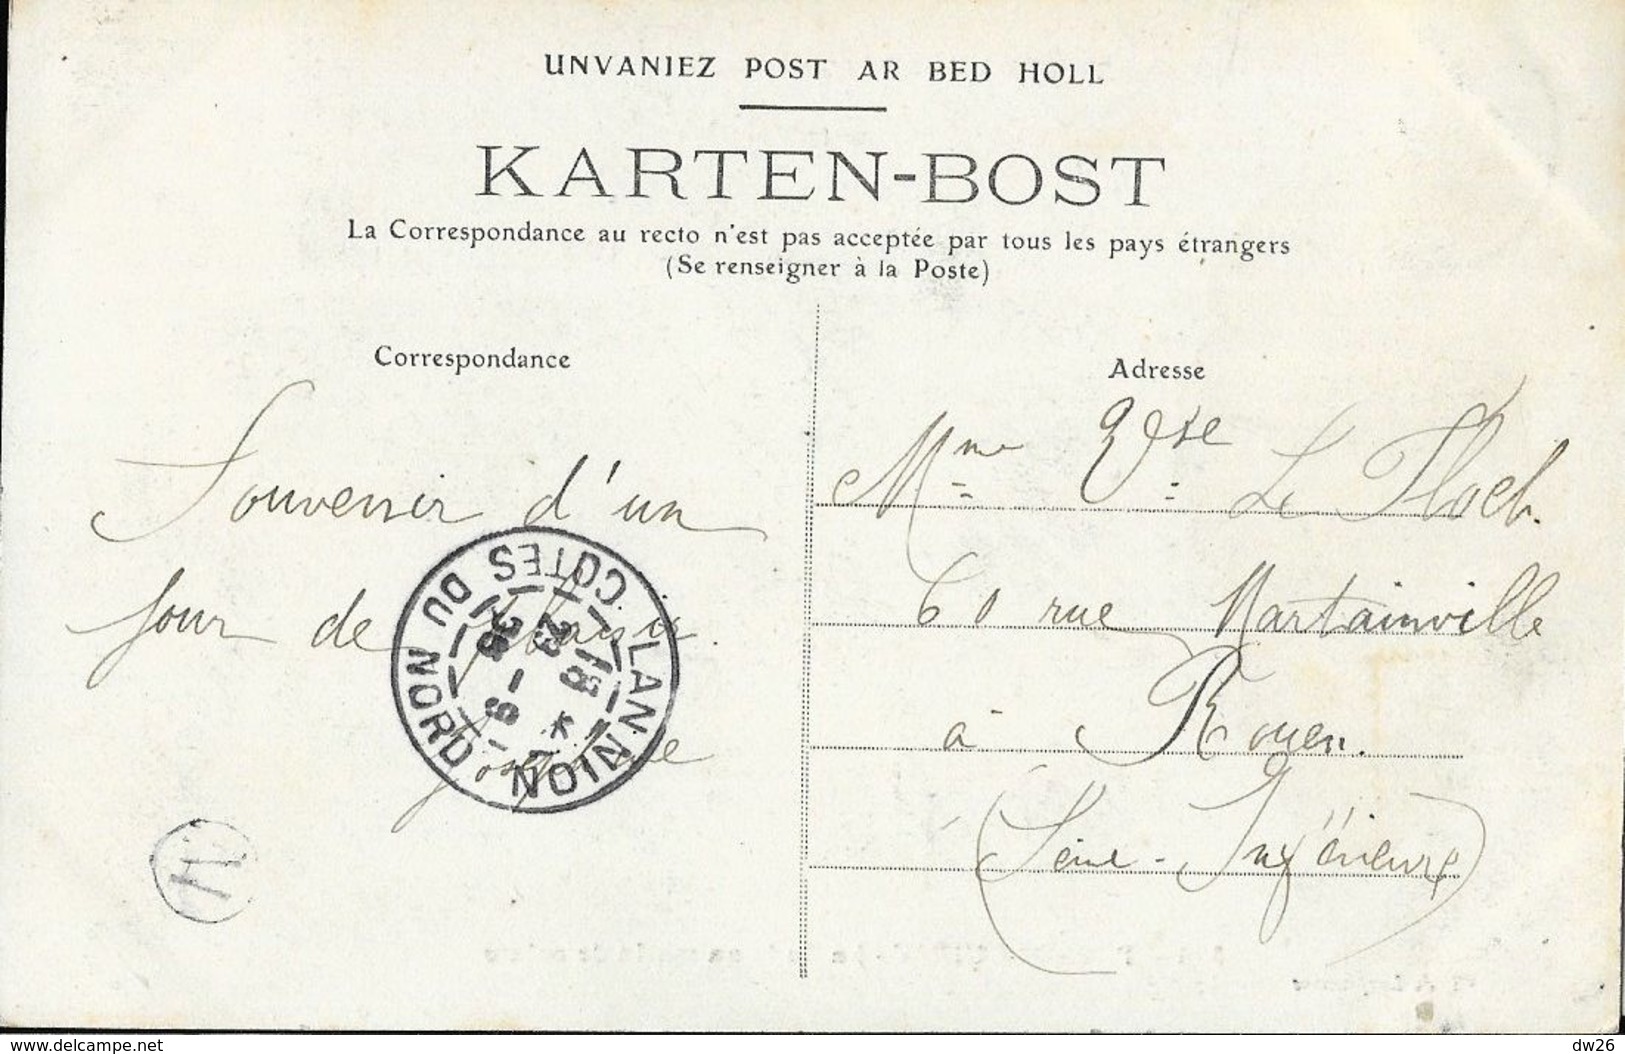 UNVANIEZ POST AR BED HOLL
KARTEN-BOST
La Correspondance au recto n'est pas acceptée par tous les pays étrangers
(Se renseigner à la Poste)
Correspondance
Adresse
Souvenir d'un
jour de plaisir.
Mme Vve Le Floch.
60 rue Martainville
à Rouen.
(Seine-Inférieure)
LANNION
COTES DU NORD
www.delcampe.net
dw26